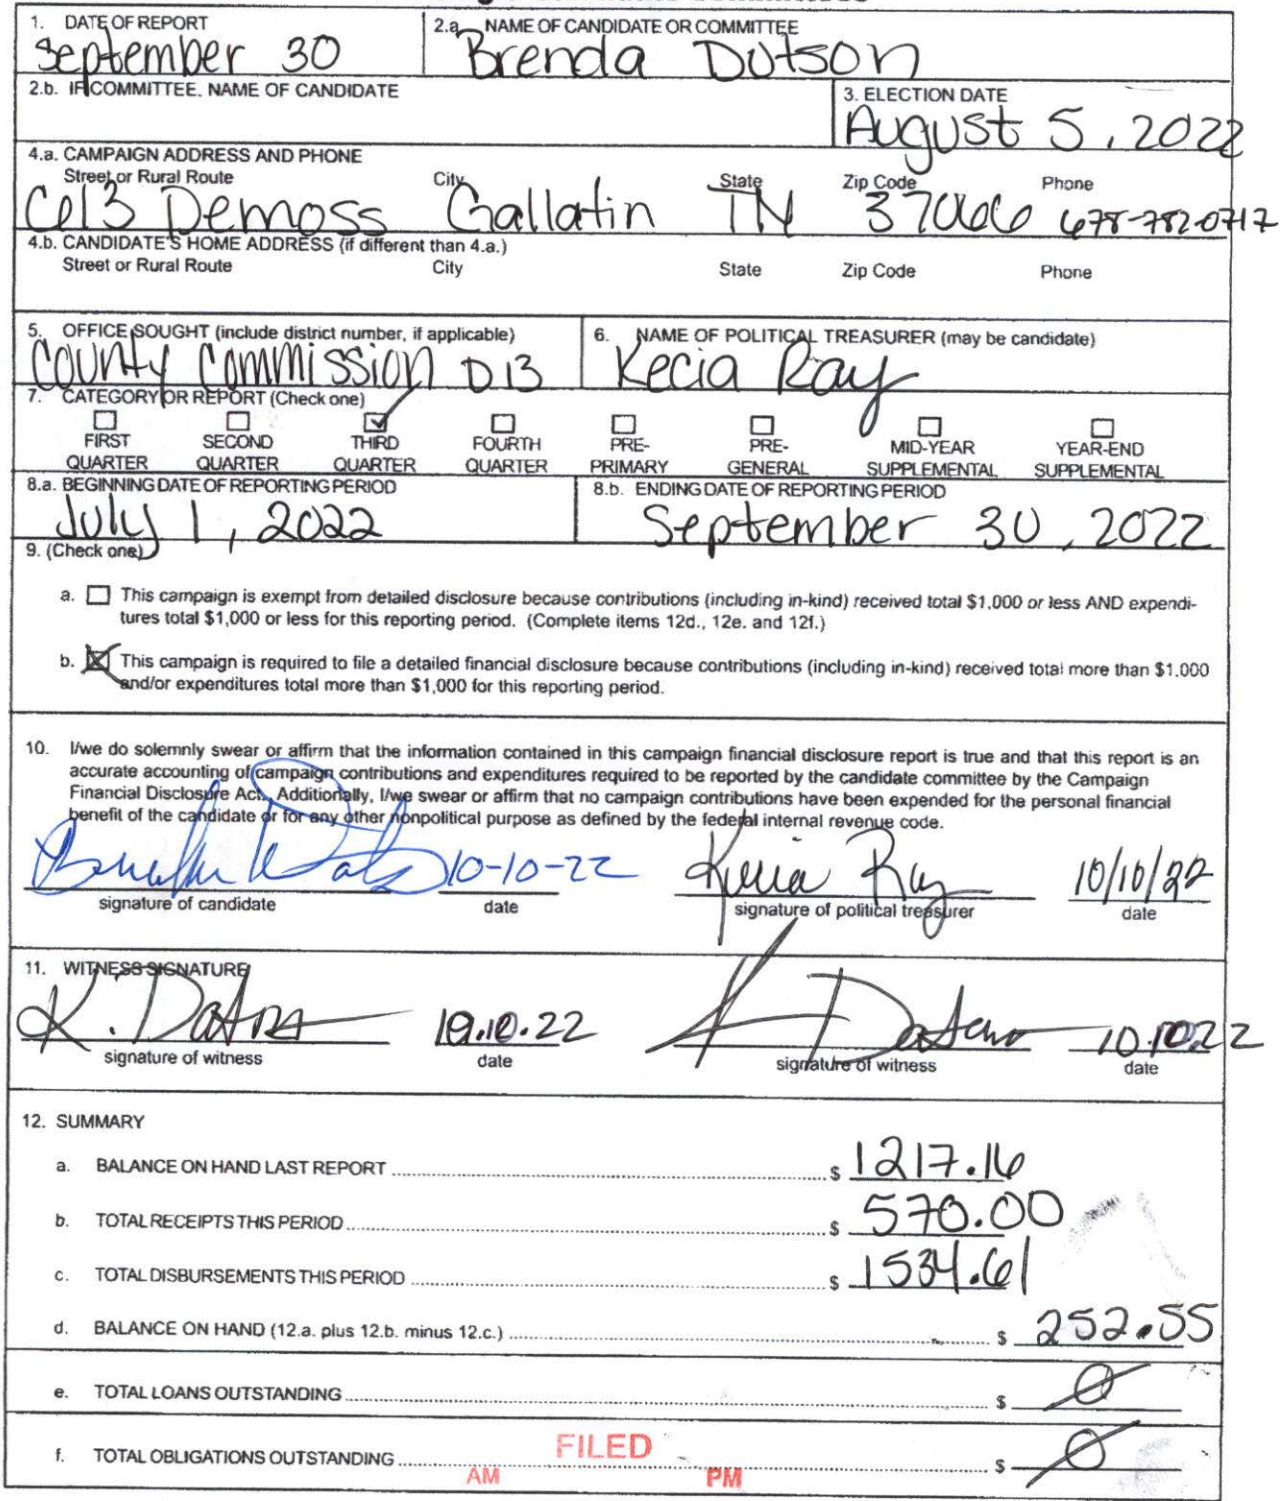 1. DATE OF REPORT
September 30
2.a. NAME OF CANDIDATE OR COMMITTEE
Brenda Dotson
2.b. IF COMMITTEE, NAME OF CANDIDATE
3. ELECTION DATE
August 5, 2022
4.a. CAMPAIGN ADDRESS AND PHONE
Street or Rural Route City State Zip Code Phone
613 Demoss Gallatin TN 37066 678-782-0717
4.b. CANDIDATE'S HOME ADDRESS (if different than 4.a.)
Street or Rural Route City State Zip Code Phone
5. OFFICE SOUGHT (include district number, if applicable)
County Commission D13
6. NAME OF POLITICAL TREASURER (may be candidate)
Kecia Ray
7. CATEGORY OR REPORT (Check one)
FIRST QUARTER
SECOND QUARTER
THIRD QUARTER
FOURTH QUARTER
PRE-PRIMARY
PRE-GENERAL
MID-YEAR SUPPLEMENTAL
YEAR-END SUPPLEMENTAL
8.a. BEGINNING DATE OF REPORTING PERIOD
July 1, 2022
8.b. ENDING DATE OF REPORTING PERIOD
September 30, 2022
9. (Check one)
a. This campaign is exempt from detailed disclosure because contributions (including in-kind) received total $1,000 or less AND expendi-
tures total $1,000 or less for this reporting period. (Complete items 12d., 12e. and 12f.)
b. This campaign is required to file a detailed financial disclosure because contributions (including in-kind) received total more than $1,000
and/or expenditures total more than $1,000 for this reporting period.
10. I/we do solemnly swear or affirm that the information contained in this campaign financial disclosure report is true and that this report is an
accurate accounting of campaign contributions and expenditures required to be reported by the candidate committee by the Campaign
Financial Disclosure Act. Additionally, I/we swear or affirm that no campaign contributions have been expended for the personal financial
benefit of the candidate or for any other nonpolitical purpose as defined by the federal internal revenue code.
10-10-22 Kecia Ray 10/10/22
signature of candidate date signature of political treasurer date
11. WITNESS SIGNATURE
K. Dotson 10.10.22 K Dotson 10.10.22
signature of witness date signature of witness date
12. SUMMARY
a. BALANCE ON HAND LAST REPORT $ 1217.16
b. TOTAL RECEIPTS THIS PERIOD $ 570.00
c. TOTAL DISBURSEMENTS THIS PERIOD $ 1534.61
d. BALANCE ON HAND (12.a. plus 12.b. minus 12.c.) $ 252.55
e. TOTAL LOANS OUTSTANDING $ 0
f. TOTAL OBLIGATIONS OUTSTANDING $ 0
FILED
AM PM